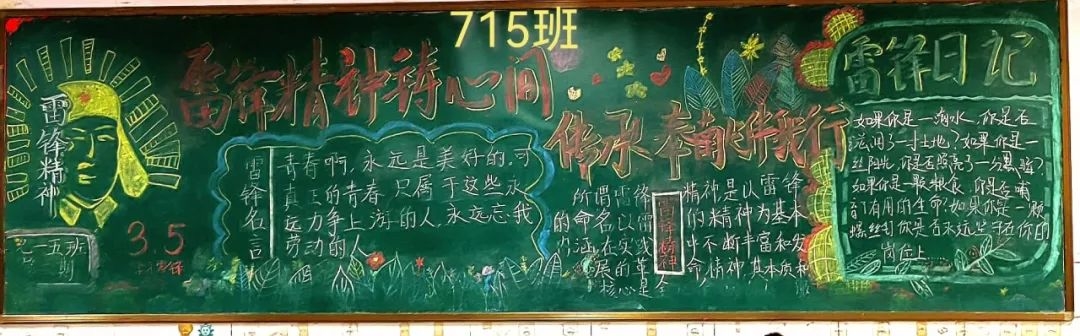 715班
雷锋精神铸心间
传承奉献伴我行
雷锋精神
一五班
3.5
雷锋名言
青春啊,永远是美好的,可
真正的青春,只属于这些永
远力争上游的人,永远忘我
劳动的人
所谓雷锋精神是以雷锋
的精神为基本
内涵
在实
中不断丰富和发
展的革命精神,其本质和
核心是全
雷锋精神
雷锋日记
如果你是一滴水,你是否
滋润了一寸土地?如果你是一
丝阳光,你是否照亮了一分黑暗?
如果你是一颗粮食,你是否哺
育了有用的生命?如果你是一颗
螺丝钉你是否永远坚守在你的
岗位上